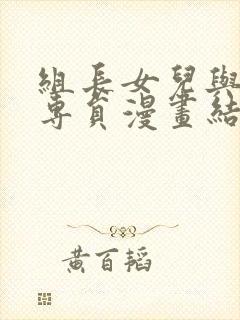 組長女兒與
專員漫畫結
黃百韜